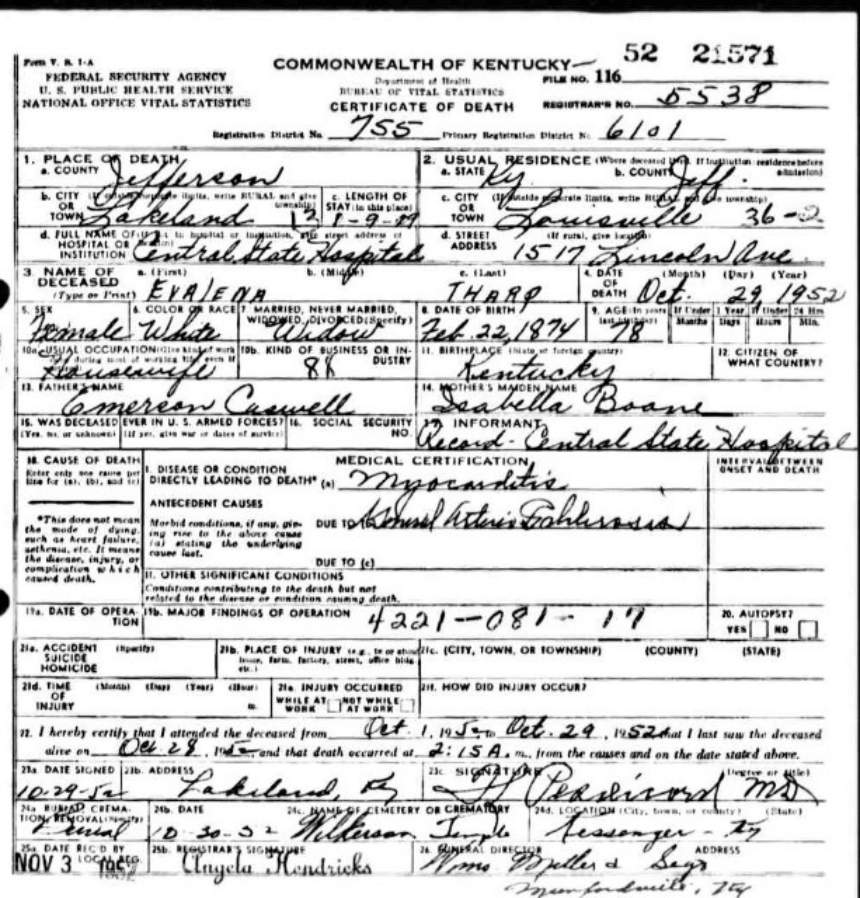 Form V. S. 1-A
FEDERAL SECURITY AGENCY
U. S. PUBLIC HEALTH SERVICE
NATIONAL OFFICE VITAL STATISTICS
COMMONWEALTH OF KENTUCKY
Department of Health
BUREAU OF VITAL STATISTICS
CERTIFICATE OF DEATH
52 21571
FILE NO. 116
REGISTRAR'S NO. 5538
Registration District No. 755 Primary Registration District No. 6101
1. PLACE OF DEATH
a. COUNTY Jefferson
2. USUAL RESIDENCE (Where deceased lived. If institution: residence before admission)
a. STATE Ky b. COUNTY Jeff.
b. CITY (If outside corporate limits, write RURAL and give township)
OR TOWN Lakeland
c. LENGTH OF STAY (in this place)
c. CITY (If outside corporate limits, write RURAL and give township)
OR TOWN Louisville 36-2
d. FULL NAME OF (If not in hospital or institution, give street address or
HOSPITAL OR INSTITUTION Central State Hospital
d. STREET ADDRESS (If rural, give location)
1517 Lincoln Ave
3. NAME OF DECEASED (Type or Print)
a. (First) b. (Middle) c. (Last)
EVALENA THARP
4. DATE OF DEATH (Month) (Day) (Year)
Oct. 29, 1952
5. SEX Female
6. COLOR OR RACE White
7. MARRIED, NEVER MARRIED, WIDOWED, DIVORCED (Specify) Widow
8. DATE OF BIRTH Feb. 22, 1874
9. AGE (In years last birthday) 78
If Under 1 Year Months Days
If Under 24 Hrs Hours Min.
10a. USUAL OCCUPATION (Give kind of work done during most of working life, even if
Housewife
10b. KIND OF BUSINESS OR INDUSTRY
11. BIRTHPLACE (State or foreign country)
Kentucky
12. CITIZEN OF WHAT COUNTRY?
13. FATHER'S NAME
Emerson Caswell
14. MOTHER'S MAIDEN NAME
Isabella Boone
15. WAS DECEASED EVER IN U. S. ARMED FORCES?
(Yes, no, or unknown) (If yes, give war or dates of service)
16. SOCIAL SECURITY NO.
17. INFORMANT
Record - Central State Hospital
18. CAUSE OF DEATH
Enter only one cause per line for (a), (b), and (c)
MEDICAL CERTIFICATION
INTERVAL BETWEEN ONSET AND DEATH
I. DISEASE OR CONDITION
DIRECTLY LEADING TO DEATH* (a) Myocarditis
*This does not mean the mode of dying, such as heart failure, asthenia, etc. It means the disease, injury, or complication which caused death.
ANTECEDENT CAUSES
Morbid conditions, if any, giving rise to the above cause (a) stating the underlying cause last.
DUE TO (b) General
DUE TO (c)
II. OTHER SIGNIFICANT CONDITIONS
Conditions contributing to the death but not related to the disease or condition causing death.
19a. DATE OF OPERATION
19b. MAJOR FINDINGS OF OPERATION
4221-081-17
20. AUTOPSY?
YES NO
21a. ACCIDENT SUICIDE HOMICIDE (Specify)
21b. PLACE OF INJURY (e.g., in or about home, farm, factory, street, office bldg., etc.)
21c. (CITY, TOWN, OR TOWNSHIP) (COUNTY) (STATE)
21d. TIME OF INJURY (Month) (Day) (Year) (Hour) m.
21e. INJURY OCCURRED
WHILE AT WORK NOT WHILE AT WORK
21f. HOW DID INJURY OCCUR?
22. I hereby certify that I attended the deceased from Oct. 1, 1952 to Oct. 29, 1952 that I last saw the deceased
alive on Oct. 28, 1952 and that death occurred at 2:15 A. m., from the causes and on the date stated above.
23a. DATE SIGNED 10-29-52
23b. ADDRESS Lakeland, Ky
23c. SIGNATURE (Degree or title)
MD
24a. BURIAL, CREMATION, REMOVAL (Specify) Burial
24b. DATE 10-30-52
24c. NAME OF CEMETERY OR CREMATORY Wilkerson Temple
24d. LOCATION (City, town, or county) (State)
Ky
25a. DATE REC'D BY LOCAL REG. NOV 3 1952
25b. REGISTRAR'S SIGNATURE
Angela Hendricks
26. FUNERAL DIRECTOR ADDRESS
Munfordville, Ky